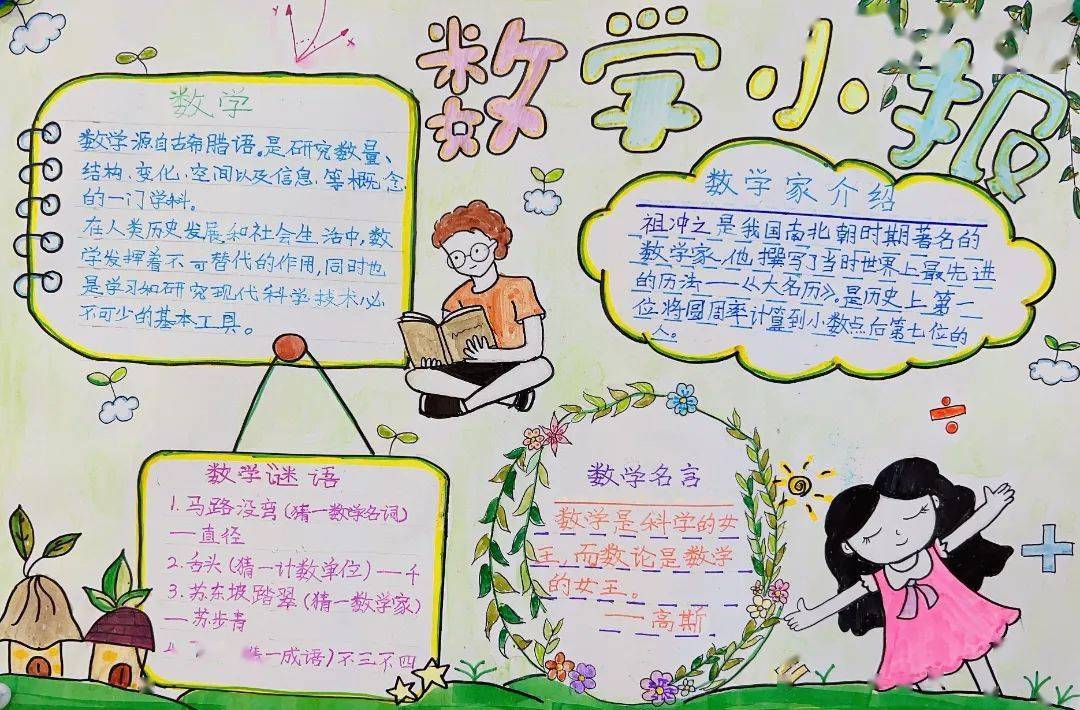 数学小报
数学
数学源自古希腊语。是研究数量、
结构、变化、空间以及信息等概念
的一门学科。
在人类历史发展和社会生活中,数
学发挥着不可替代的作用,同时也
是学习如研究现代科学技术必
不可少的基本工具。
数学家介绍
祖冲之是我国南北朝时期著名的
数学家、他撰写了当时世界上最先进
的历法——《大名历》。是历史上第一
位将圆周率计算到小数点后第七位的
人。
数学谜语
1.马路没弯(猜一数学名词)
—直径
2.舌头(猜一计数单位)—千
3.苏东坡踏翠(猜一数学家)
—苏步青
猜一成语)不三不四
数学名言
数学是科学的女
王,而数论是数学
的女王。
——高斯